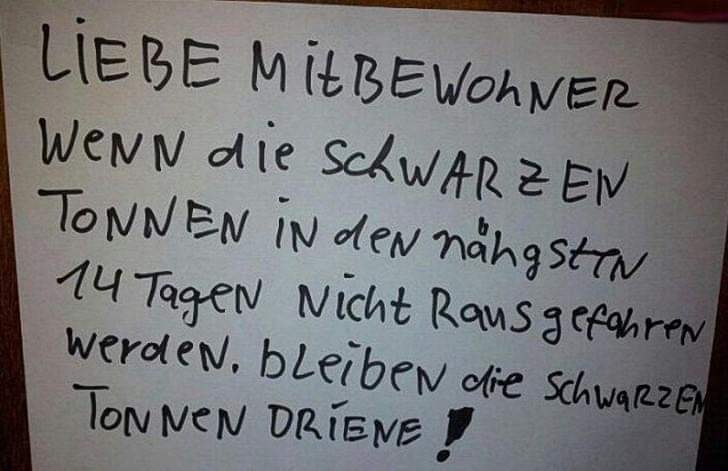 LiEBE MitBEWOhNER
WeNN die SchWARZEN
TONNEN iN deN nähgstTN
14 TageN Nicht Rausgefahren
werdeN. bLeibeN die SchwaRZEN
TONNeN DRiENE!